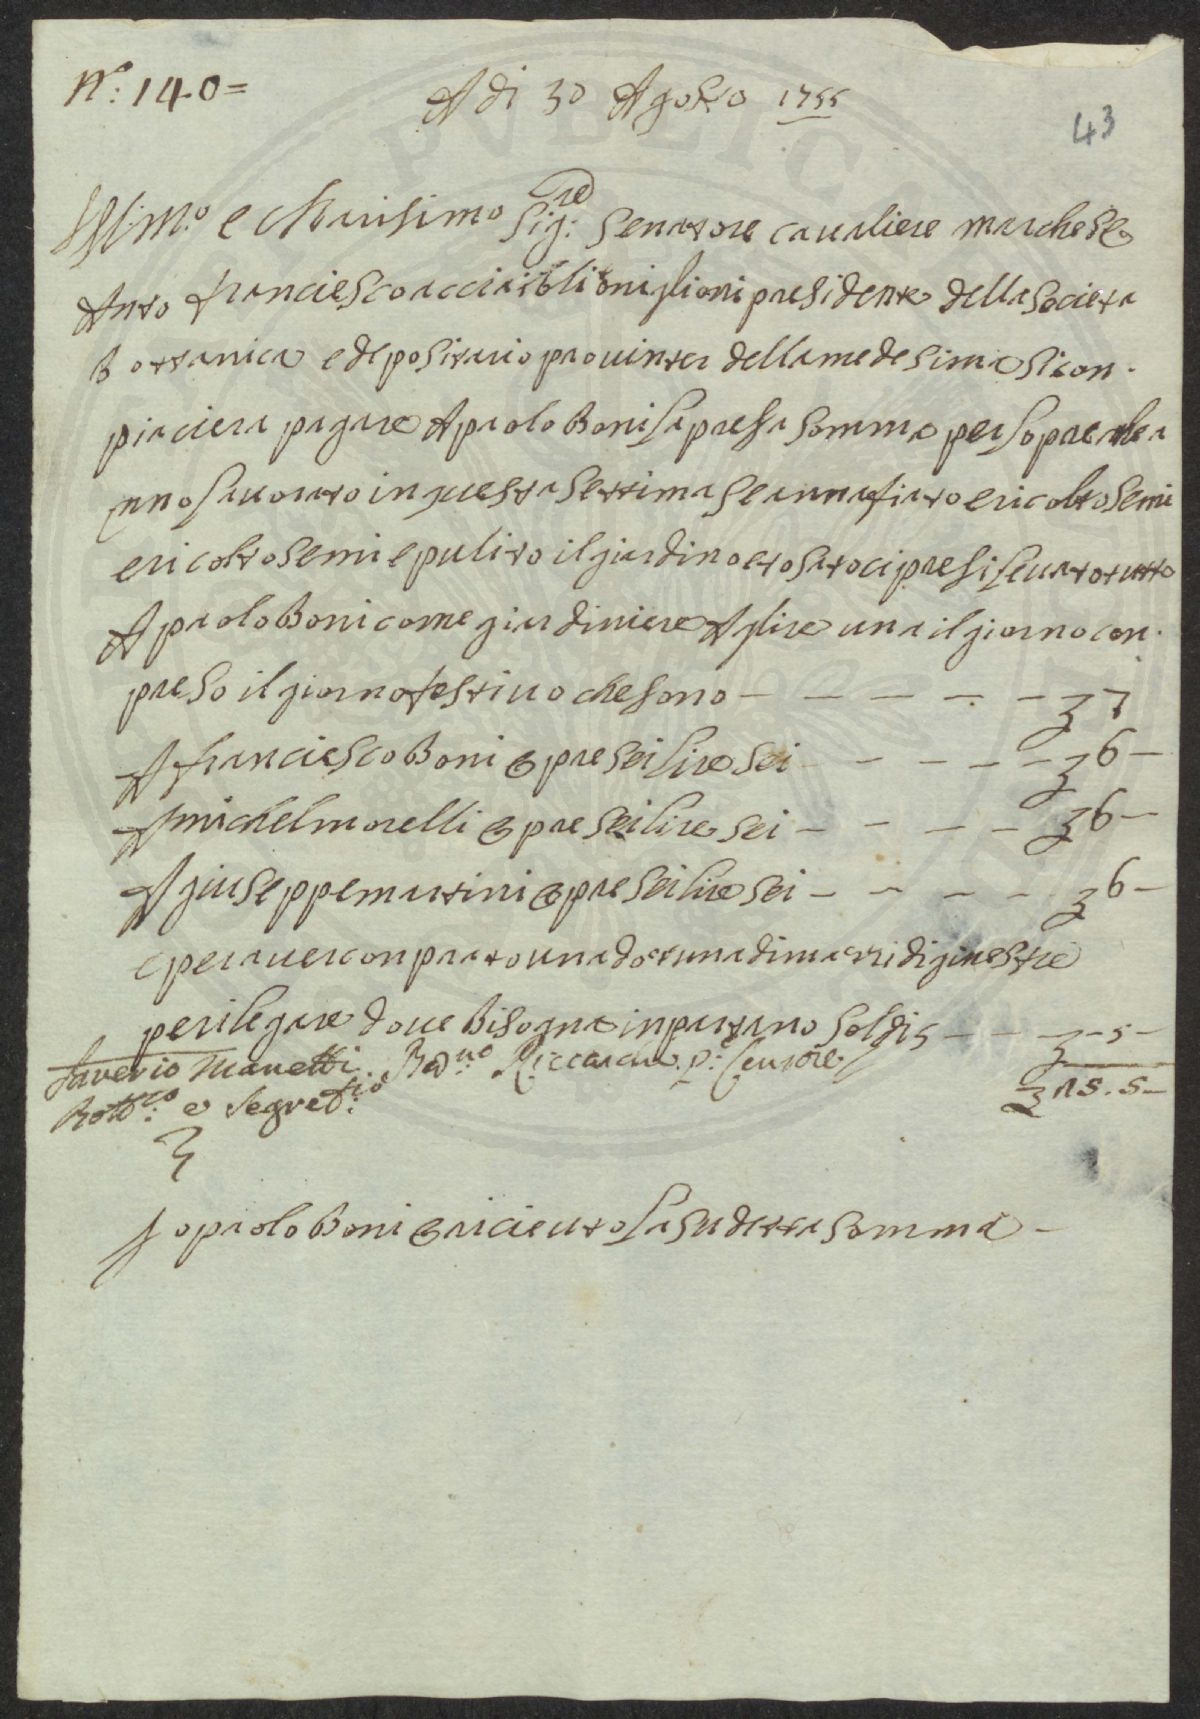 Nº: 140=
A di 30 Agosto 1755
43
Illmo: e Clarisimo Sig:re Senatore cavaliere marchese
Anto franciesco acciaioli presidente della Societa
Bottanica e depositario provinter della medesima si con-
piaciera pagare A paolo Boni la presa somma per l opre che a
nno lavorato in questa settima se annafiato e ricolto semi
e ricolto semi e pulito il giardino e tosato cipresi levato tutto
A paolo Boni come giardiniere A lire una il giorno con-
preso il giorno festivo che sono — — — — — — 7
A franciesco Boni @ pre sei lire sei — — — — — 6 —
A michel morelli @ pre sei lire sei — — — — 6 —
A giuseppe martini @ pre sei lire sei — — — — 6 —
e per aver conprato una di mazzi di ginestre
per ilegare dove bisogna in partano soldi 5 — — — 5 —
Saverio Manetti Riccardi p: Censore
Bottco: e Segretrio:
25. 5 —
Jo paolo Boni @ riceuto la sudetta somma —